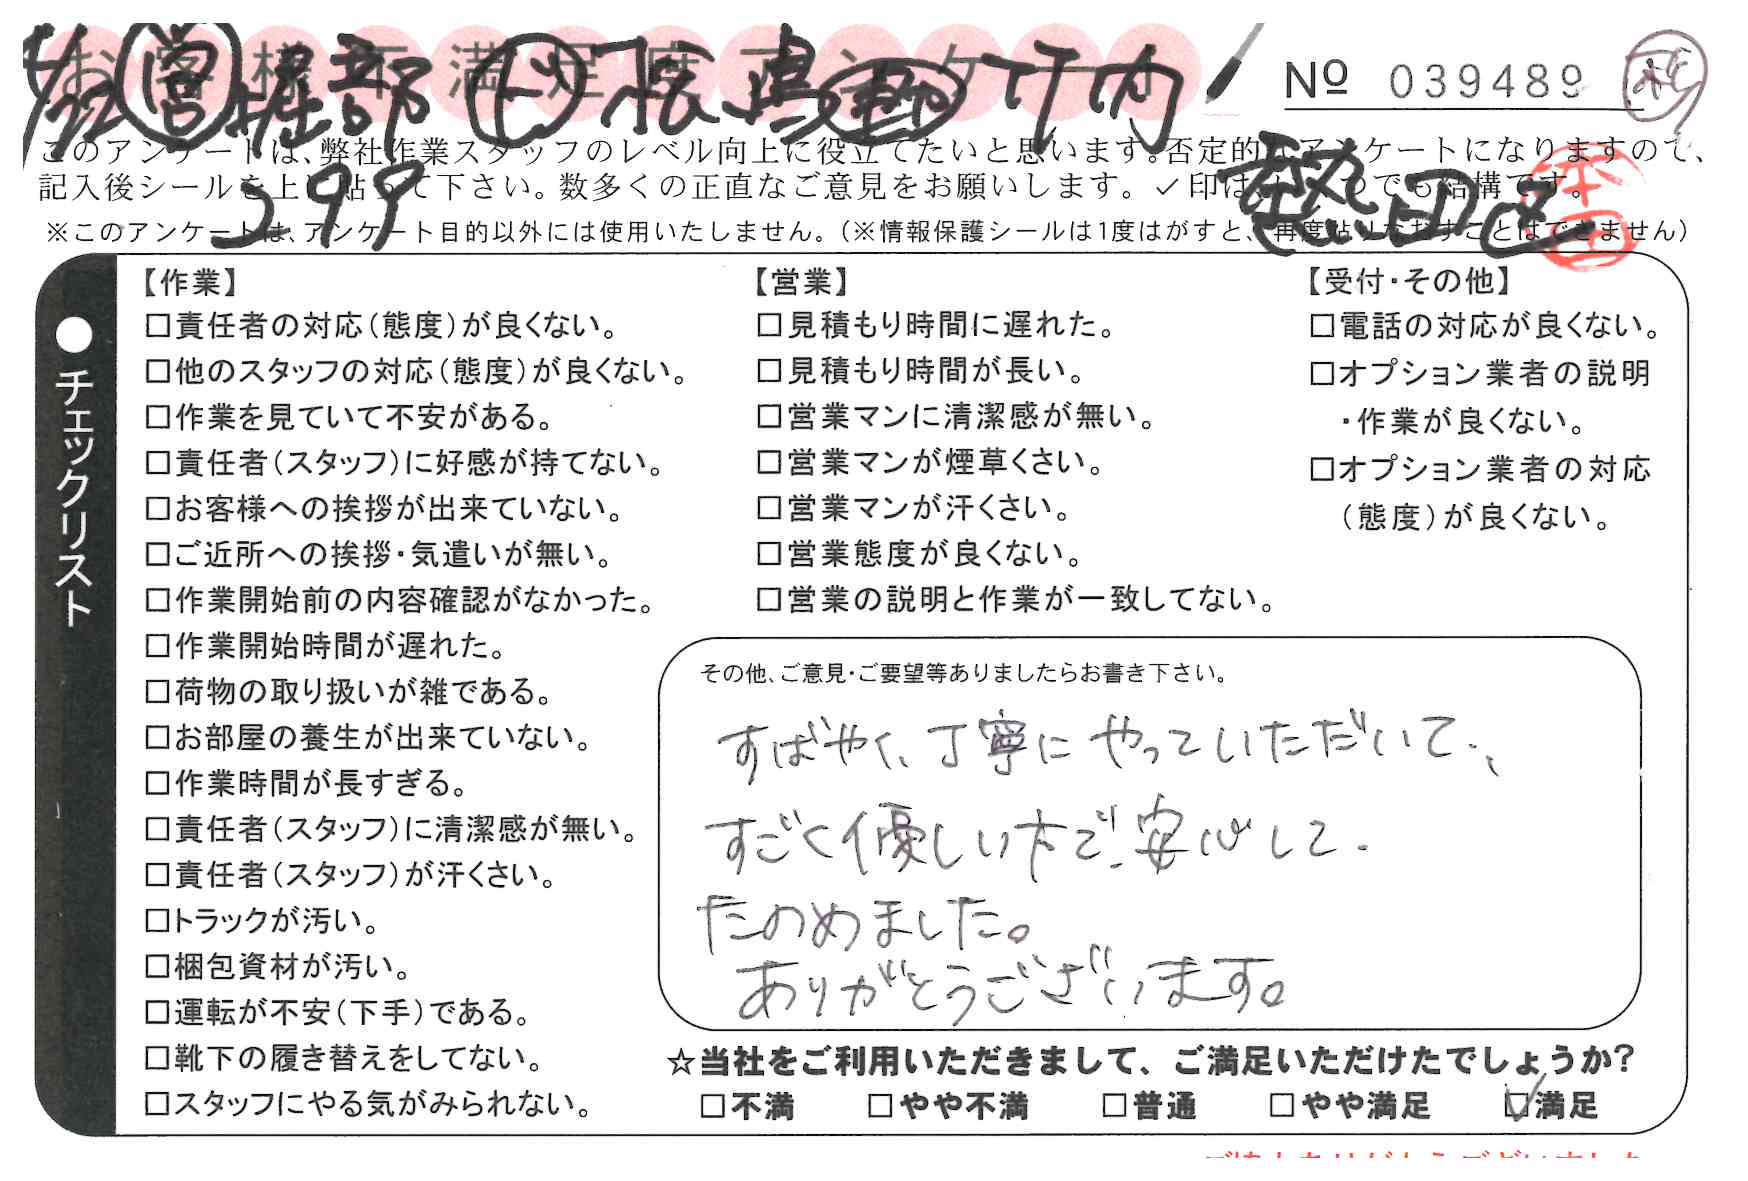 お客様不満足度アンケート
4/22 営 堀部 ド 張嶋 助 竹内
No 039489
このアンケートは、弊社作業スタッフのレベル向上に役立てたいと思います。否定的なアンケートになりますので、
記入後シールを上に貼って下さい。数多くの正直なご意見をお願いします。✓印はいくつでも結構です。
299
本田
※このアンケートは、アンケート目的以外には使用いたしません。(※情報保護シールは1度はがすと、再度貼りなおすことはできません)
●チェックリスト
【作業】
□責任者の対応(態度)が良くない。
□他のスタッフの対応(態度)が良くない。
□作業を見ていて不安がある。
□責任者(スタッフ)に好感が持てない。
□お客様への挨拶が出来ていない。
□ご近所への挨拶・気遣いが無い。
□作業開始前の内容確認がなかった。
□作業開始時間が遅れた。
□荷物の取り扱いが雑である。
□お部屋の養生が出来ていない。
□作業時間が長すぎる。
□責任者(スタッフ)に清潔感が無い。
□責任者(スタッフ)が汗くさい。
□トラックが汚い。
□梱包資材が汚い。
□運転が不安(下手)である。
□靴下の履き替えをしてない。
□スタッフにやる気がみられない。
【営業】
□見積もり時間に遅れた。
□見積もり時間が長い。
□営業マンに清潔感が無い。
□営業マンが煙草くさい。
□営業マンが汗くさい。
□営業態度が良くない。
□営業の説明と作業が一致してない。
【受付・その他】
□電話の対応が良くない。
□オプション業者の説明
・作業が良くない。
□オプション業者の対応
(態度)が良くない。
その他、ご意見・ご要望等ありましたらお書き下さい。
すばやく、丁寧にやっていただいて、
すごく優しい方で、安心して
たのめました。
ありがとうございます。
☆当社をご利用いただきまして、ご満足いただけたでしょうか?
□不満 □やや不満 □普通 □やや満足 ☑満足